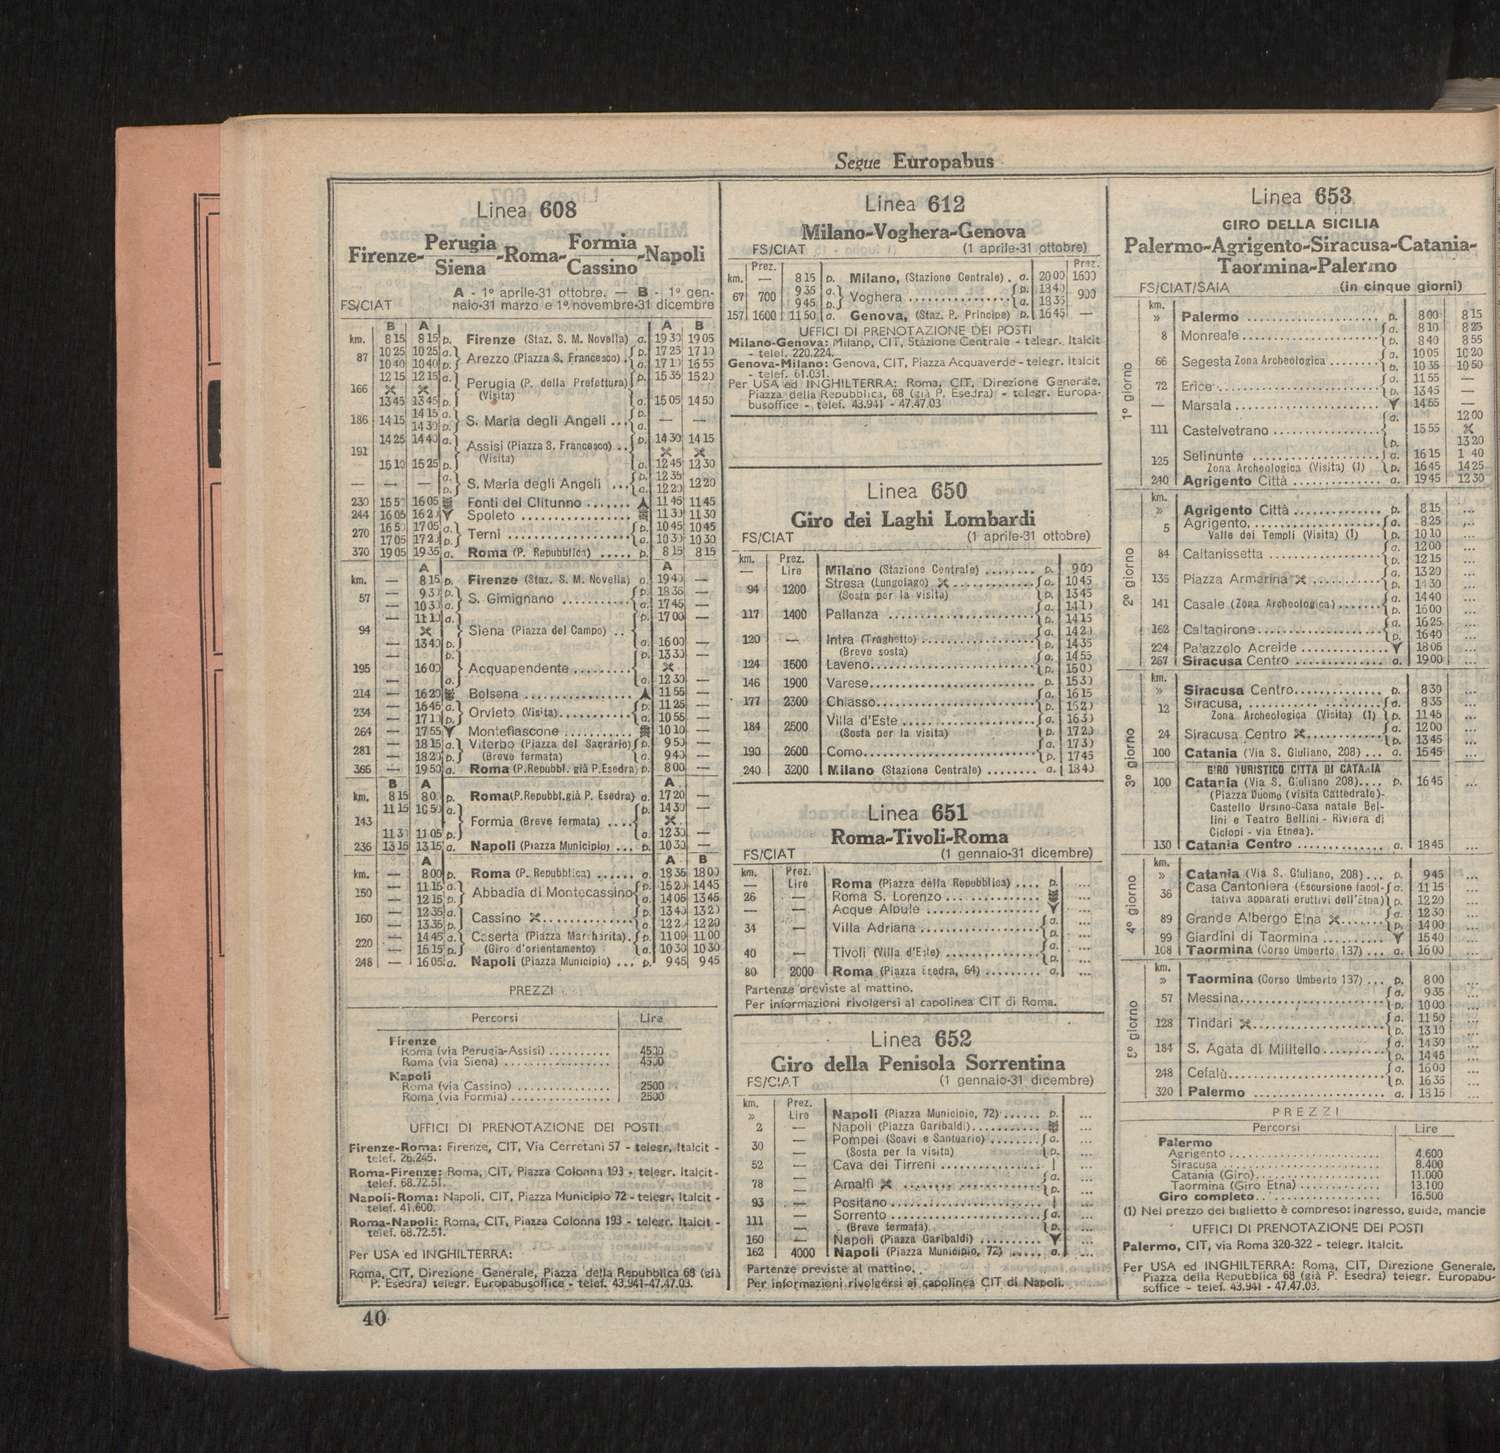 Segue Europabus
Linea 608
Firenze- Perugia Siena -Roma- Formia Cassino -Napoli
FS/CIAT A - 1º aprile-31 ottobre. — B - 1º gen-
naio-31 marzo e 1º novembre-31 dicembre
B A A B
km. 8 15 8 15 p. Firenze (Staz. S. M. Novella) a. 19 30 19 05
87 10 25 10 25 a. Arezzo (Piazza S. Francesco) p. 17 25 17 10
10 40 10 40 p. a. 17 10 16 55
166 12 15 12 15 a. Perugia (P. della Prefettura) p. 15 35 15 20
(Visita)
13 45 13 45 p. a. 15 05 14 50
186 14 15 14 15 a. S. Maria degli Angeli ... p. — —
14 30 p. a.
191 14 25 14 40 a. Assisi (Piazza S. Francesco) .. p. 14 30 14 15
(Visita)
15 10 15 25 p. a. 12 45 12 30
— — — a. S. Maria degli Angeli ... p. 12 35 12 20
p. a. 12 20
230 16 05 Fonti del Clitunno ....... 11 45 11 45
244 16 05 Spoleto ................ 11 30 11 30
270 17 05 a. Terni ............... p. 10 45 10 45
17 05 17 20 p. a. 10 30 10 30
370 19 05 19 35 a. Roma (P. Repubblica) ..... p. 8 15 8 15
A A
km. — 8 15 p. Firenze (Staz. S. M. Novella) a. 19 40 —
57 — 9 30 a. S. Gimignano .......... p. 18 35 —
— 10 30 p. a. 17 45 —
94 — 11 10 a. Siena (Piazza del Campo) .. p. 17 00 —
13 40 p. a. 16 00 —
195 — 16 00 Acquapendente ......... p. 13 30 —
a. 12 30 —
214 — 16 20 Bolsena ................ 11 55 —
234 — 16 45 a. Orvieto (Visita) ........... p. 11 25 —
— 17 10 p. a. 10 55 —
264 — 17 55 Montefiascone .......... 10 10 —
281 — 18 15 a. Viterbo (Piazza del Sacrario) p. 9 50 —
— 18 20 p. (Breve fermata) a. 9 40 —
366 — 19 50 a. Roma (P.Repubbl. già P.Esedra) p. 8 00 —
B A A
km. 8 15 8 00 p. Roma (P.Repubbl. già P. Esedra) a. 17 20 —
143 11 15 10 50 a. Formia (Breve fermata) .... p. 14 30 —
11 30 11 05 p. a. 12 30 —
236 13 15 13 15 a. Napoli (Piazza Municipio) ... p. 10 30 —
A A B
km. — 8 00 p. Roma (P. Repubblica) ...... a. 18 35 18 00
150 — 11 15 a. Abbadia di Montecassino p. 15 20 14 45
— 12 15 p. a. 14 05 13 45
160 — 12 35 a. Cassino ............. p. 13 40 13 20
— 13 35 p. a. 12 20 12 20
220 — 14 45 a. Caserta (Piazza Margherita) . p. 11 00 11 00
— 15 15 p. (Giro d'orientamento) a. 10 30 10 30
248 — 16 05 a. Napoli (Piazza Municipio) ... p. 9 45 9 45
PREZZI
Percorsi Lire
Firenze
Roma (via Perugia-Assisi) .......... 4500
Roma (via Siena) .................. 4500
Napoli
Roma (via Cassino) ............... 2500
Roma (via Formia) ................ 2500
UFFICI DI PRENOTAZIONE DEI POSTI
Firenze-Roma: Firenze, CIT, Via Cerretani 57 - telegr. Italcit -
telef. 26.245.
Roma-Firenze: Roma, CIT, Piazza Colonna 193 - telegr. Italcit-
telef. 68.72.51.
Napoli-Roma: Napoli, CIT, Piazza Municipio 72 - telegr. Italcit -
telef. 41.600.
Roma-Napoli: Roma, CIT, Piazza Colonna 193 - telegr. Italcit -
telef. 68.72.51.
Per USA ed INGHILTERRA:
Roma, CIT, Direzione Generale, Piazza della Repubblica 68 (già
P. Esedra) telegr. Europabusoffice - telef. 43.941-47.47.03.
40
Linea 612
Milano-Voghera-Genova
FS/CIAT (1 aprile-31 ottobre)
km. Prez. Prez.
— 8 15 p. Milano, (Stazione Centrale) . a. 20 00 1600
67 700 9 35 a. Voghera ............... p. 18 40 900
9 45 p. a. 18 35
157 1600 11 50 a. Genova, (Staz. P. Principe) p. 16 45 —
UFFICI DI PRENOTAZIONE DEI POSTI
Milano-Genova: Milano, CIT, Stazione Centrale - telegr. Italcit
- telef. 220.224.
Genova-Milano: Genova, CIT, Piazza Acquaverde - telegr. Italcit
- telef. 61.031.
Per USA ed INGHILTERRA: Roma, CIT, Direzione Generale,
Piazza della Repubblica, 68 (già P. Esedra) - telegr. Europa-
busoffice - telef. 43.941 - 47.47.03
Linea 650
Giro dei Laghi Lombardi
FS/CIAT (1 aprile-31 ottobre)
km. Prez. Lire
— Milano (Stazione Centrale) ........ p. 9 00
94 1200 Stresa (Lungolago) ............ a. 10 45
(Sosta per la visita) p. 13 45
117 1400 Pallanza .................... a. 14 10
p. 14 15
120 — Intra (Traghetto) ................. a. 14 20
(Breve sosta) p. 14 35
124 1600 Laveno ........................ a. 14 55
p. 15 00
146 1900 Varese ........................ p. 15 30
177 2300 Chiasso ....................... a. 16 15
p. 15 20
184 2500 Villa d'Este ................... a. 16 30
(Sosta per la visita) p. 17 20
190 2600 Como ........................ a. 17 30
p. 17 45
240 3200 Milano (Stazione Centrale) ........ a. 18 40
Linea 651
Roma-Tivoli-Roma
FS/CIAT (1 gennaio-31 dicembre)
km. Prez. Lire
— Roma (Piazza della Repubblica) .... p. ...
26 — Roma S. Lorenzo ............... ...
— — Acque Albule .................. ...
34 — Villa Adriana .................. a. ...
p. ...
40 — Tivoli (Villa d'Este) .............. a. ...
p. ...
80 2000 Roma (Piazza Esedra, 64) ......... a. ...
Partenze previste al mattino.
Per informazioni rivolgersi al capolinea CIT di Roma.
Linea 652
Giro della Penisola Sorrentina
FS/CIAT (1 gennaio-31 dicembre)
km. Prez. Lire
» Napoli (Piazza Municipio, 72) ...... p. ...
2 — Napoli (Piazza Garibaldi) ........... ...
30 — Pompei (Scavi e Santuario) ........ a. ...
(Sosta per la visita) p.
52 — Cava dei Tirreni ............... ...
78 — Amalfi .................. a. ...
p. ...
93 — Positano ..................... ...
111 — Sorrento ..................... a. ...
(Breve fermata) p. ...
160 — Napoli (Piazza Garibaldi) ......... ...
162 4000 Napoli (Piazza Municipio, 72) ...... a. ...
Partenze previste al mattino.
Per informazioni rivolgersi al capolinea CIT di Napoli.
Linea 653
GIRO DELLA SICILIA
Palermo-Agrigento-Siracusa-Catania-
Taormina-Palermo
FS/CIAT/SAIA (in cinque giorni)
1º giorno
km.
» Palermo ...................... p. 8 00 8 15
8 Monreale ..................... a. 8 10 8 25
p. 8 40 8 55
66 Segesta Zona Archeologica ....... a. 10 05 10 20
p. 10 35 10 50
72 Erice ........................ a. 11 55 —
p. 13 45 —
— Marsala ...................... 14 55 —
111 Castelvetrano ................ a. 15 55 12 00
p. 13 20
125 Selinunte .................... a. 16 15 1 40
Zona Archeologica (Visita) (1) p. 16 45 14 25
240 Agrigento Città ............. a. 19 45 12 30
2º giorno
km.
» Agrigento Città ............. p. 8 15 ...
5 Agrigento, .................... a. 8 25 ...
Valle dei Templi (Visita) (1) p. 10 10 ...
84 Caltanissetta ................. a. 12 00 ...
p. 12 15 ...
135 Piazza Armerina ........... a. 13 20 ...
p. 14 30 ...
141 Casale (Zona Archeologica) ....... a. 14 40 ...
p. 16 00 ...
162 Caltagirone .................. a. 16 25 ...
p. 16 40 ...
224 Palazzolo Acreide ............. 18 05 ...
267 Siracusa Centro ............. a. 19 00 ...
3º giorno
km.
» Siracusa Centro ............. p. 8 30 ...
12 Siracusa, .................... a. 8 35 ...
Zona Archeologica (Visita) (1) p. 11 45 ...
24 Siracusa Centro ........... a. 12 00 ...
p. 13 45 ...
100 Catania (Via S. Giuliano, 208) ... a. 15 45 ...
GIRO TURISTICO CITTÀ DI CATANIA
100 Catania (Via S. Giuliano 208) .... p. 16 45 ...
(Piazza Duomo (visita Cattedrale)-
Castello Ursino-Casa natale Bel-
lini e Teatro Bellini - Riviera di
Ciclopi - via Etnea).
130 Catania Centro ............. a. 18 45 ...
4º giorno
km.
» Catania (Via S. Giuliano, 208) ... p. 9 45 ...
36 Casa Cantoniera (Escursione facol- a. 11 15 ...
tativa apparati eruttivi dell'Etna) p. 12 20 ...
89 Grande Albergo Etna ....... a. 12 30 ...
p. 14 00 ...
99 Giardini di Taormina .......... 15 40 ...
108 Taormina (Corso Umberto 137) ... a. 16 00 ...
5º giorno
km.
» Taormina (Corso Umberto 137) ... p. 8 00 ...
57 Messina ...................... a. 9 35 ...
p. 10 00 ...
128 Tindari .................. a. 11 50 ...
p. 13 10 ...
184 S. Agata di Militello .......... a. 14 30 ...
p. 14 45 ...
248 Cefalù ....................... a. 16 00 ...
p. 16 35 ...
320 Palermo ..................... a. 18 15 ...
PREZZI
Percorsi Lire
Palermo
Agrigento ......................... 4.600
Siracusa .......................... 8.400
Catania (Giro) ..................... 11.000
Taormina (Giro Etna) .............. 13.100
Giro completo .................. 16.500
(1) Nel prezzo del biglietto è compreso: ingresso, guide, mancie
UFFICI DI PRENOTAZIONE DEI POSTI
Palermo, CIT, via Roma 320-322 - telegr. Italcit.
Per USA ed INGHILTERRA: Roma, CIT, Direzione Generale,
Piazza della Repubblica 68 (già P. Esedra) telegr. Europabu-
soffice - telef. 43.941 - 47.47.03.